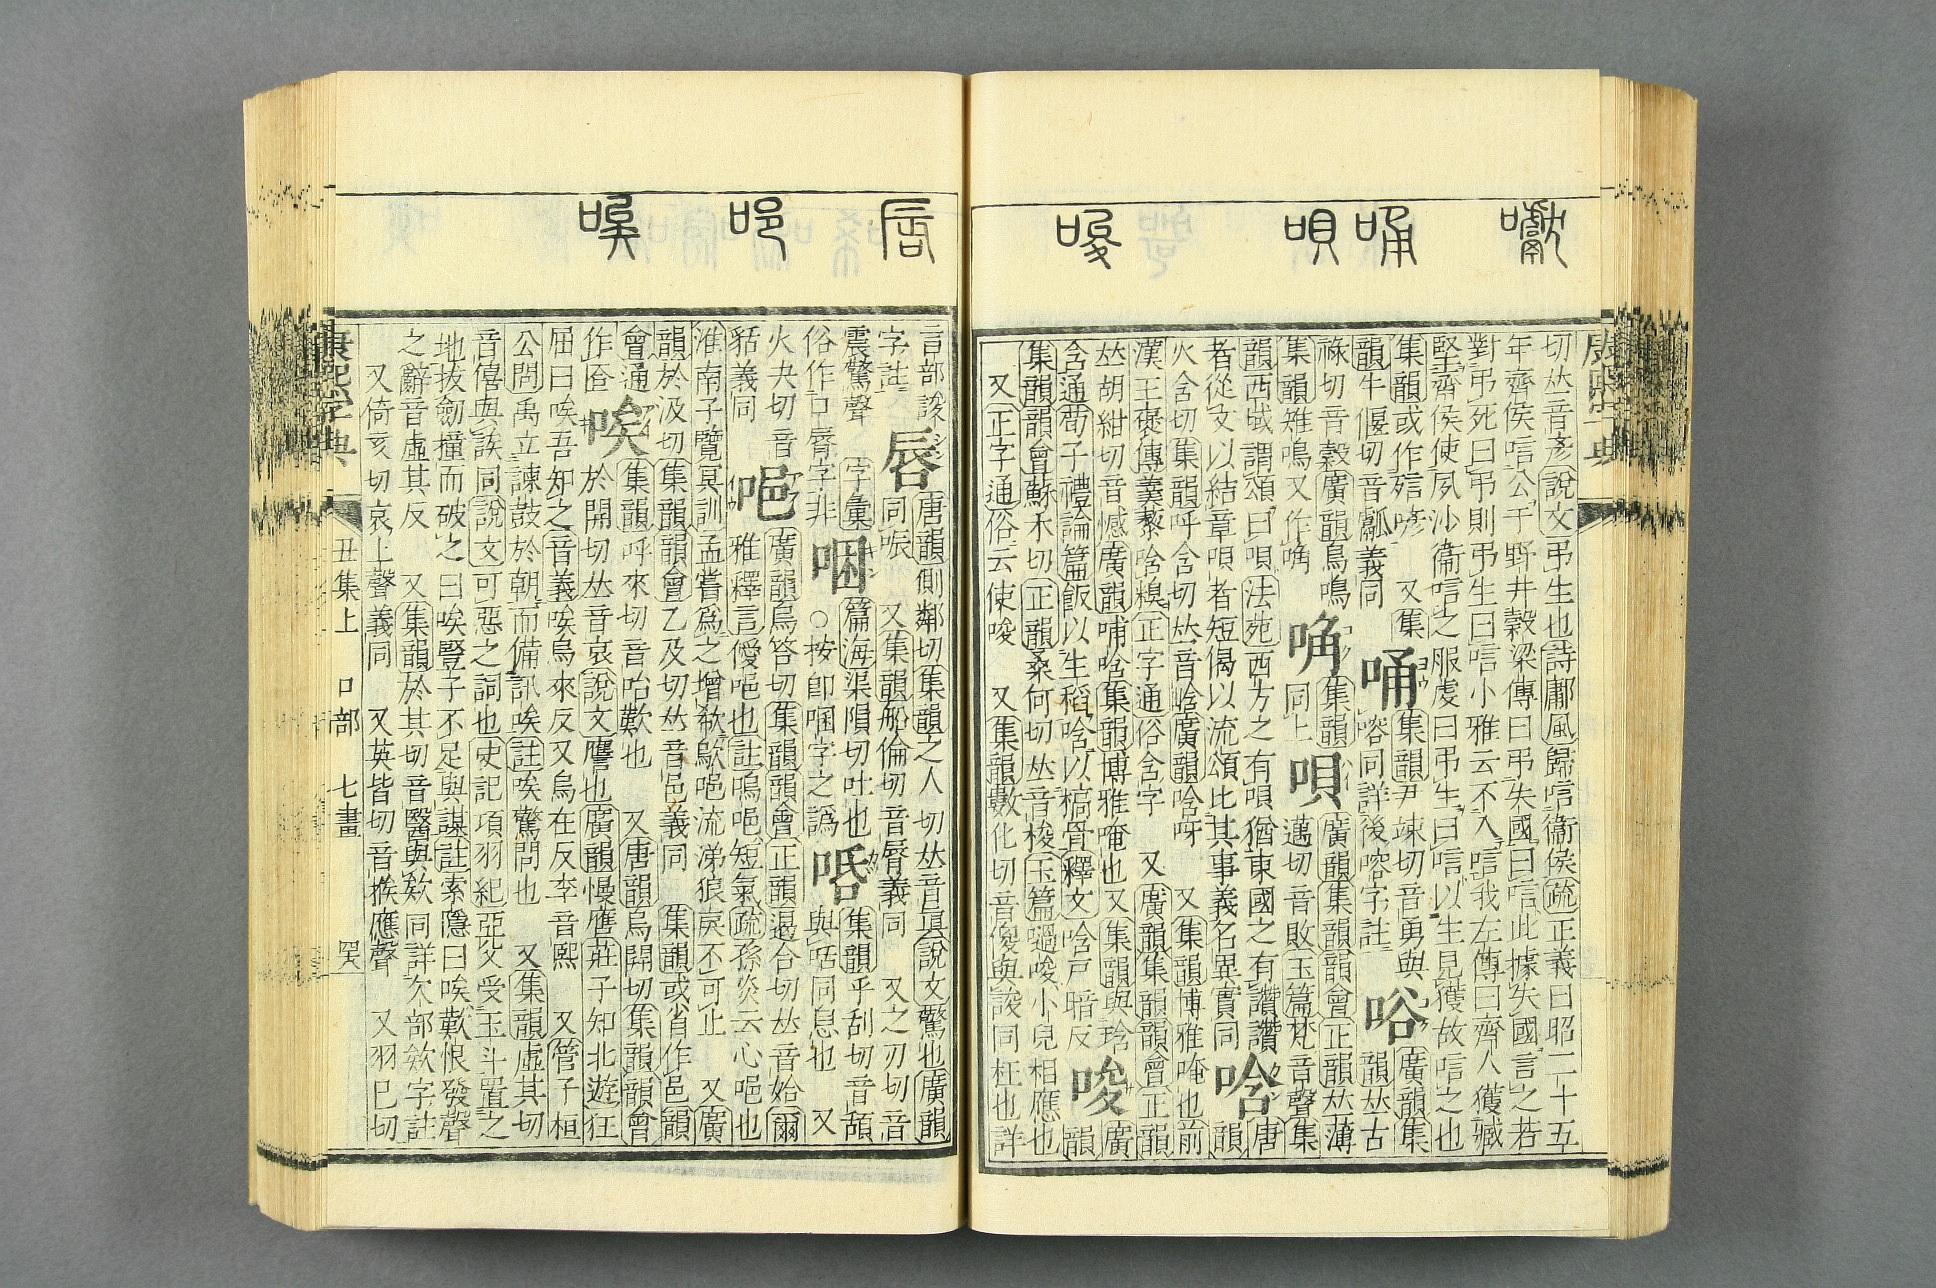 切𠀤音彥說文弔生也詩鄘風歸唁衞侯疏正義曰昭二十五
年齊侯唁公于野井穀梁傳曰弔失國曰唁此據失國言之若
對弔死曰弔則弔生曰唁小雅云不入唁我左傳曰齊人獲臧
堅齊侯使夙沙衞唁之服虔曰弔生曰唁以生見獲故唁之也
集韻或作喭 又集 集韻尹竦切音勇與 唂 廣韻集
韻牛偃切音巘義同 嗈同詳後嗈字註 韻𠀤古
祿切音穀廣韻鳥鳴 唃 集韻 唄 廣韻集韻韻會正韻𠀤薄
集韻雉鳴又作唃 同上 邁切音敗玉篇梵音聲集
韻西域謂頌曰唄法苑西方之有唄猶東國之有讚讚 唅 唐
者從文以結章唄者短偈以流頌比其事義名異實同 韻
火含切集韻呼含切𠀤音㟏廣韻唅呀 又集韻博雅唵也前
漢王褒傳羹藜唅糗正字通俗含字 又廣韻集韻韻會正韻
𠀤胡紺切音憾廣韻哺唅集韻博雅唵也又集韻與琀 唆 廣
含通荀子禮論篇飯以生稻唅以槁骨釋文唅戸暗反 韻
集韻韻會蘇禾切正韻桑何切𠀤音梭玉篇㗻唆小兒相應也
又正字通俗云使唆 又集韻數化切音傻與誜同枉也詳
言部誜 唇 唐韻側鄰切集韻之人切𠀤音眞說文驚也廣韻
字註 同哌 又集韻船倫切音脣義同 又之刃切音
震驚聲 字彙 啯 篇海渠隕切吐也 𠯑 集韻乎刮切音頢
俗作口脣字非 ○按卽啯字之譌 與咶同息也 又
火夬切音 唈 廣韻烏答切集韻韻會正韻遏合切𠀤音始爾
餂義同 雅釋言僾唈也註嗚唈短氣疏孫炎云心唈也
淮南子覽冥訓孟嘗爲之增欷歍唈流涕狼戾不可止 又廣
韻於汲切集韻韻會乙及切𠀤音邑義同 集韻或省作邑韻
會通作㕎 唉 集韻呼來切音咍歎也 又唐韻烏開切集韻韻會
於開切𠀤音哀說文譍也廣韻慢譍莊子知北遊狂
屈曰唉吾知之音義唉烏來反又烏在反李音熙 又管子桓
公問禹立諫鼓於朝而備訊唉註唉驚問也 又集韻虛其切
音僖與誒同說文可惡之詞也史記項羽紀亞父受玉斗置之
地拔劒撞而破之曰唉豎子不足與謀註索隱曰唉歎恨發聲
之辭音虛其反 又集韻於其切音醫與欸同詳欠部欸字註
又倚亥切哀上聲義同 又英皆切音挨應聲 又羽已切
康熙字典 丑集上 口部 七畫